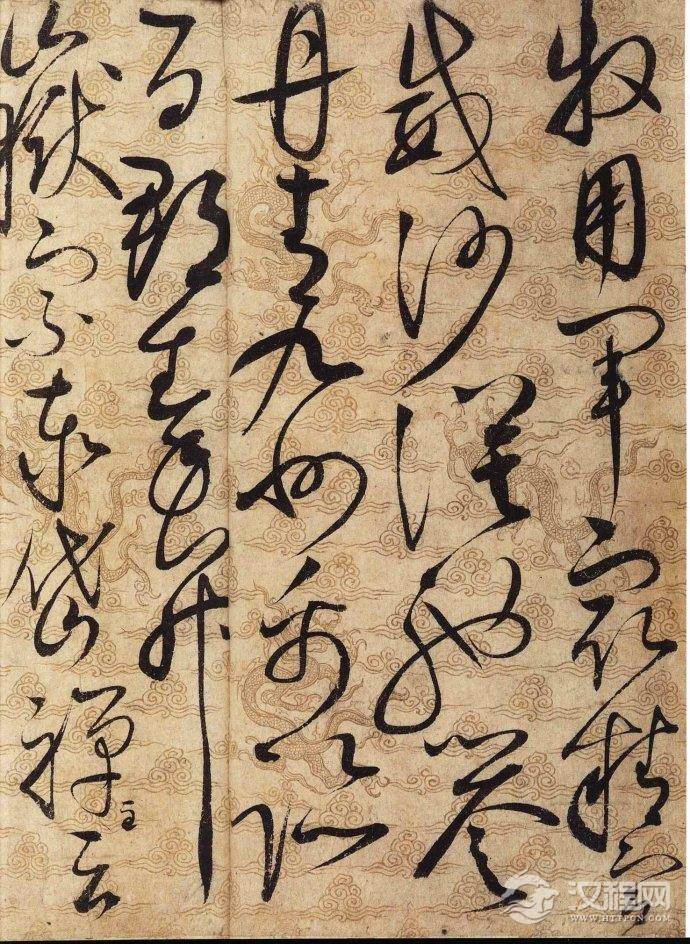 牧用軍最精宣
威沙漠馳譽
丹青九州禹跡
百郡秦并
嶽宗泰岱禪主云
汉程网
WWW.HTTPCN.COM